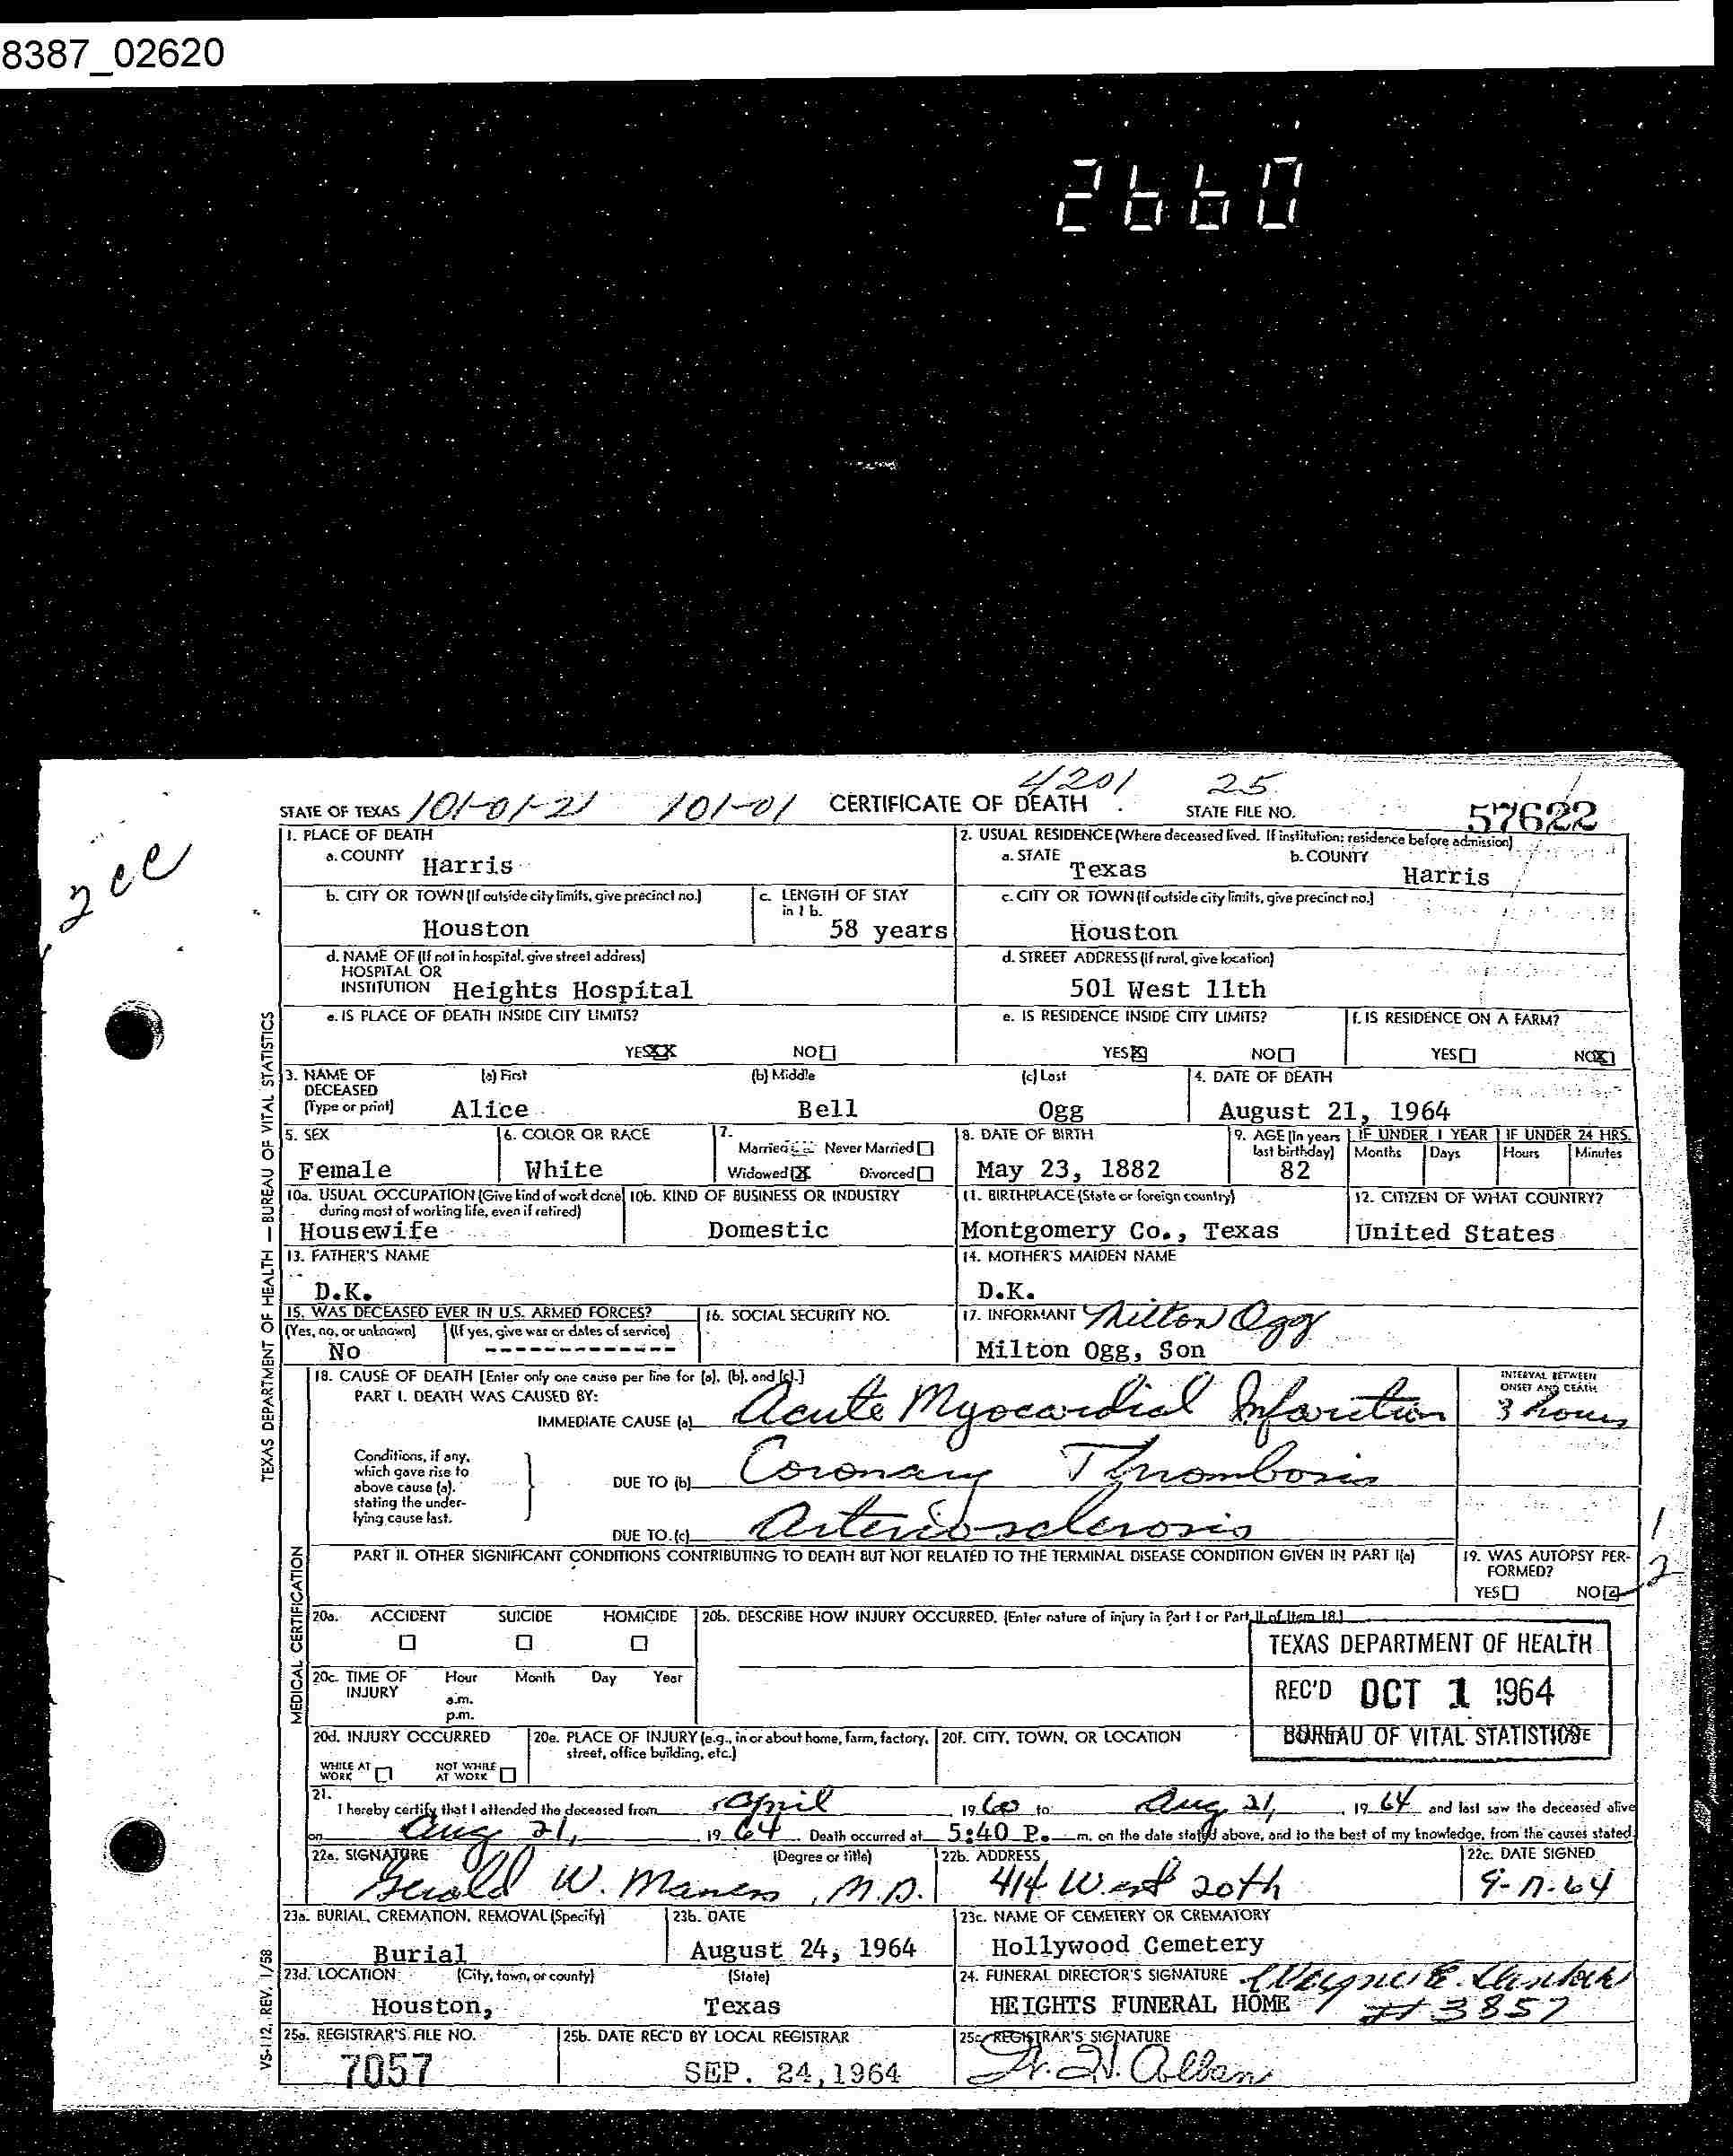 8387_02620
2660
2cc
4201 25
STATE OF TEXAS 101-01-21 101-01 CERTIFICATE OF DEATH STATE FILE NO. 57622
1. PLACE OF DEATH
a. COUNTY Harris
2. USUAL RESIDENCE (Where deceased lived. If institution: residence before admission)
a. STATE Texas b. COUNTY Harris
b. CITY OR TOWN (If outside city limits, give precinct no.) Houston
c. LENGTH OF STAY in 1 b. 58 years
c. CITY OR TOWN (if outside city limits, give precinct no.) Houston
d. NAME OF (If not in hospital, give street address)
HOSPITAL OR
INSTITUTION Heights Hospital
d. STREET ADDRESS (if rural, give location)
501 West 11th
e. IS PLACE OF DEATH INSIDE CITY LIMITS?
YES XX NO
e. IS RESIDENCE INSIDE CITY LIMITS?
YES X NO
f. IS RESIDENCE ON A FARM?
YES NO X
3. NAME OF DECEASED (Type or print)
(a) First Alice (b) Middle Bell (c) Last Ogg
4. DATE OF DEATH
August 21, 1964
5. SEX
Female
6. COLOR OR RACE
White
7. Married Never Married
Widowed X Divorced
8. DATE OF BIRTH
May 23, 1882
9. AGE (In years last birthday) 82
IF UNDER 1 YEAR Months Days
IF UNDER 24 HRS. Hours Minutes
10a. USUAL OCCUPATION (Give kind of work done during most of working life, even if retired)
Housewife
10b. KIND OF BUSINESS OR INDUSTRY
Domestic
11. BIRTHPLACE (State or foreign country)
Montgomery Co., Texas
12. CITIZEN OF WHAT COUNTRY?
United States
13. FATHER'S NAME
D.K.
14. MOTHER'S MAIDEN NAME
D.K.
15. WAS DECEASED EVER IN U.S. ARMED FORCES?
(Yes, no, or unknown) (If yes, give war or dates of service)
No -------------
16. SOCIAL SECURITY NO.
17. INFORMANT Milton Ogg
Milton Ogg, Son
18. CAUSE OF DEATH [Enter only one cause per line for (a), (b), and (c).]
PART I. DEATH WAS CAUSED BY:
INTERVAL BETWEEN ONSET AND DEATH
IMMEDIATE CAUSE (a) Acute Myocardial Infarction 3 hours
Conditions, if any, which gave rise to above cause (a), stating the underlying cause last.
DUE TO (b) Coronary Thrombosis
DUE TO (c) Arteriosclerosis
PART II. OTHER SIGNIFICANT CONDITIONS CONTRIBUTING TO DEATH BUT NOT RELATED TO THE TERMINAL DISEASE CONDITION GIVEN IN PART I(a)
19. WAS AUTOPSY PERFORMED?
YES NO
1
2
20a. ACCIDENT SUICIDE HOMICIDE
20b. DESCRIBE HOW INJURY OCCURRED. (Enter nature of injury in Part I or Part II of Item 18.)
TEXAS DEPARTMENT OF HEALTH
REC'D OCT 1 1964
BUREAU OF VITAL STATISTICS
20c. TIME OF INJURY Hour Month Day Year
a.m.
p.m.
20d. INJURY OCCURRED
WHILE AT WORK NOT WHILE AT WORK
20e. PLACE OF INJURY (e.g., in or about home, farm, factory, street, office building, etc.)
20f. CITY, TOWN, OR LOCATION
21.
I hereby certify that I attended the deceased from April 1960 to Aug 21, 1964 and last saw the deceased alive
on Aug 21, 1964. Death occurred at 5:40 P. m. on the date stated above, and to the best of my knowledge, from the causes stated.
22a. SIGNATURE (Degree or title)
Gerald W. Maness, M.D.
22b. ADDRESS
414 West 20th
22c. DATE SIGNED
9-17-64
23a. BURIAL, CREMATION, REMOVAL (Specify)
Burial
23b. DATE
August 24, 1964
23c. NAME OF CEMETERY OR CREMATORY
Hollywood Cemetery
23d. LOCATION (City, town, or county) (State)
Houston, Texas
24. FUNERAL DIRECTOR'S SIGNATURE
HEIGHTS FUNERAL HOME # 3857
25a. REGISTRAR'S FILE NO.
7057
25b. DATE REC'D BY LOCAL REGISTRAR
SEP. 24, 1964
25c. REGISTRAR'S SIGNATURE
TEXAS DEPARTMENT OF HEALTH — BUREAU OF VITAL STATISTICS
MEDICAL CERTIFICATION
VS-112, REV. 1/58